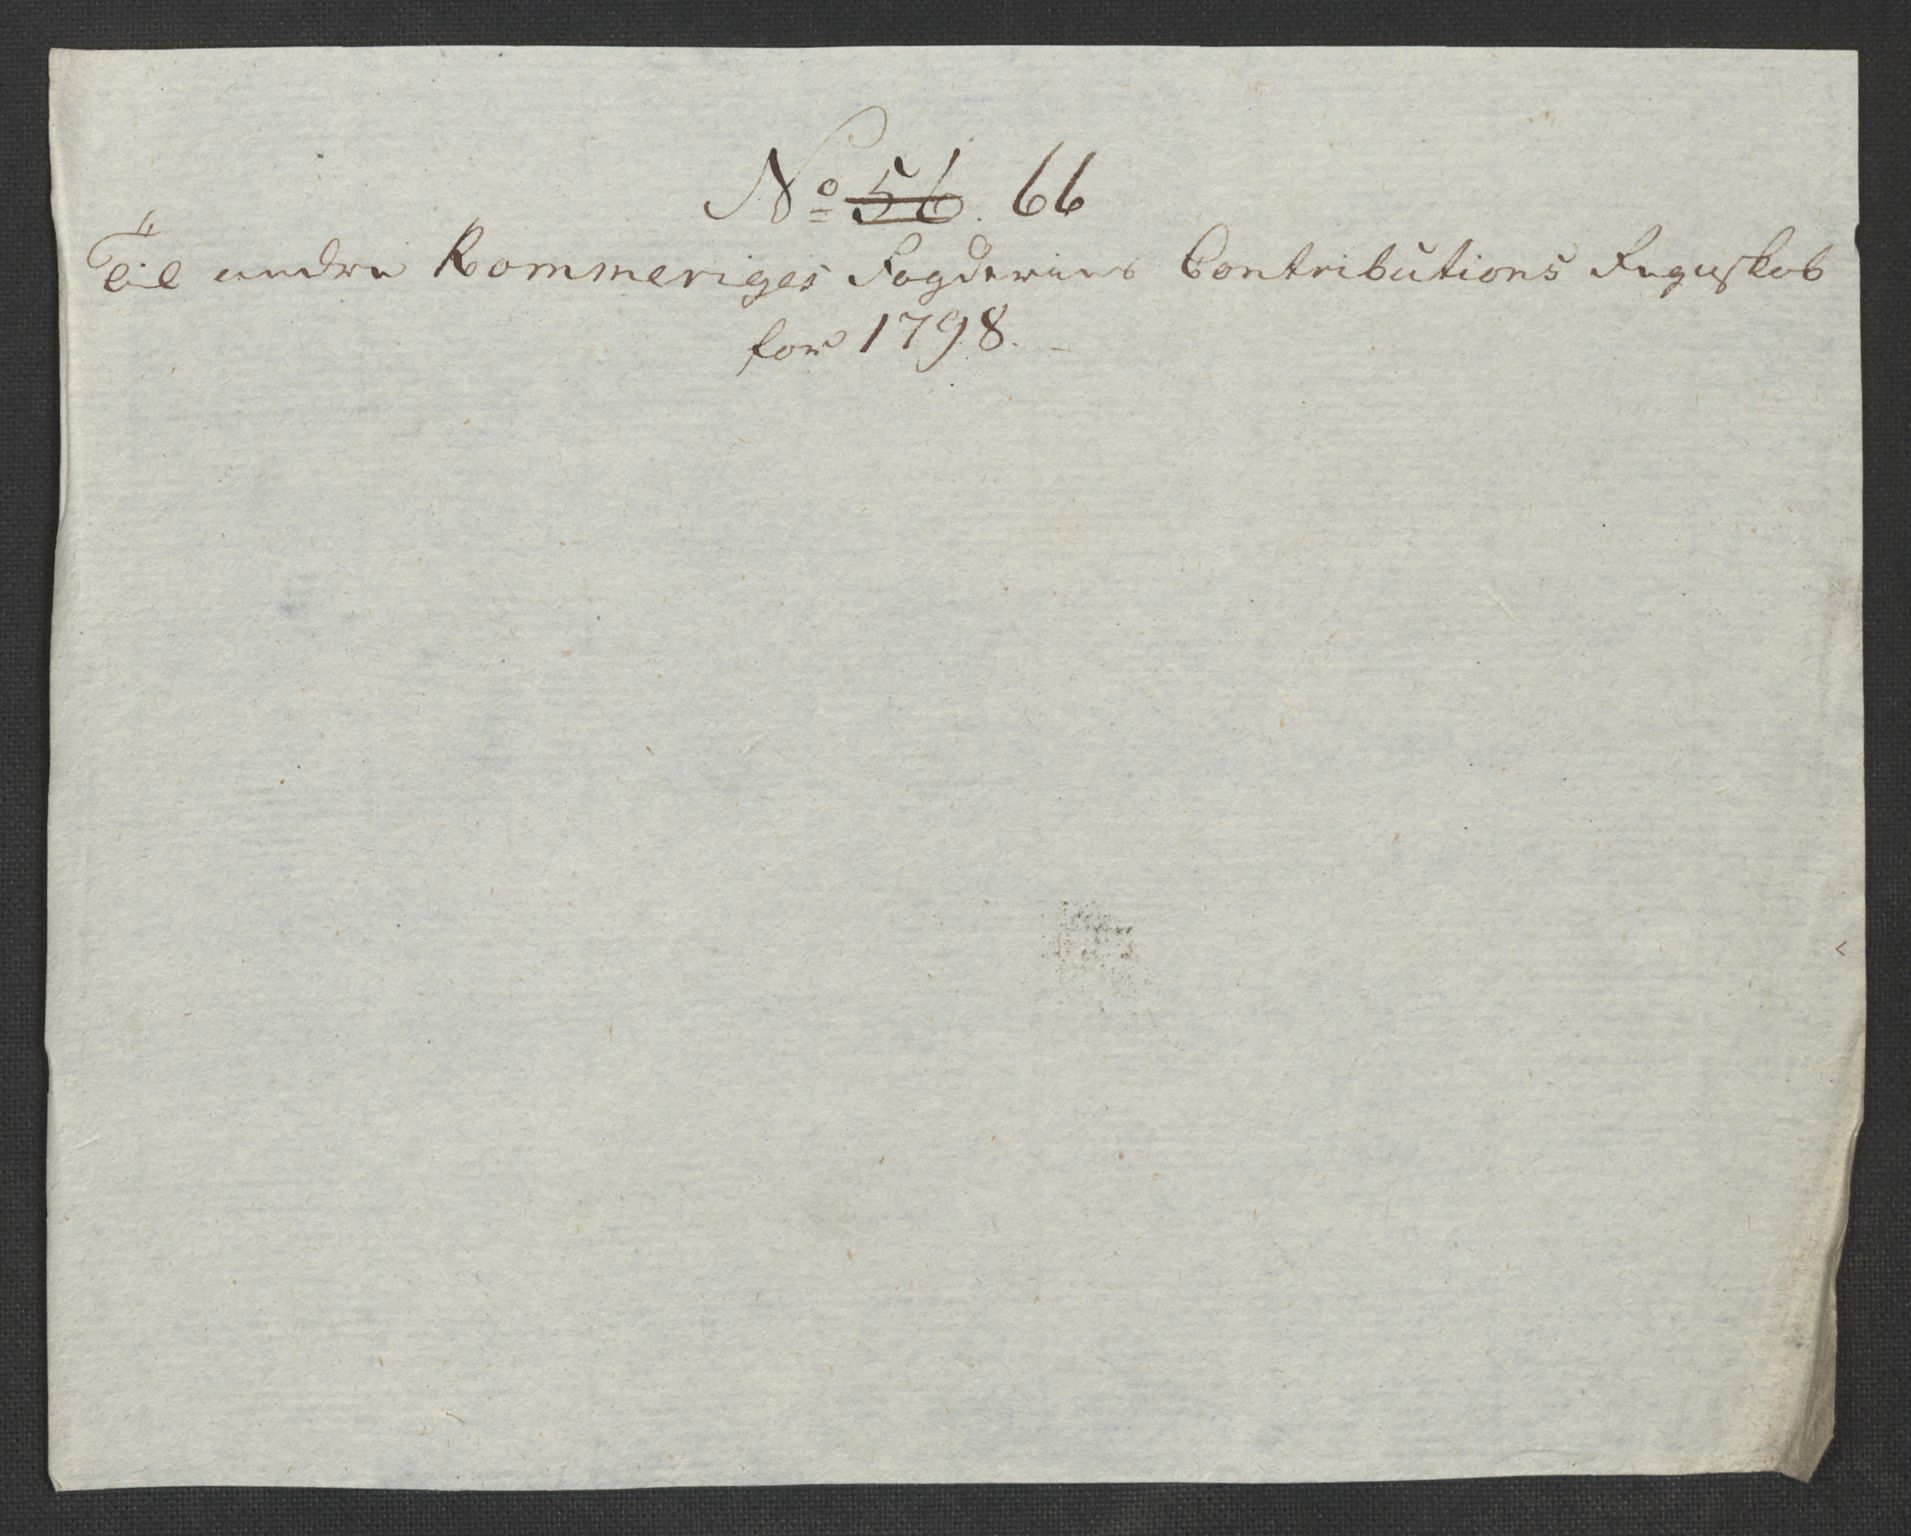 No 56. 66
Til nedre Rommeriges Fogderies Contributions Regnskab
for 1798.